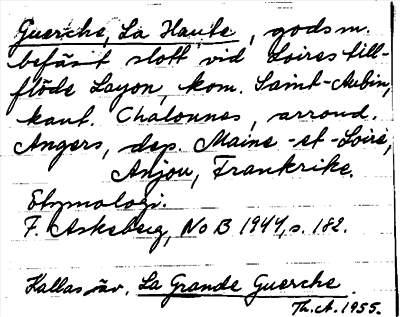 Guerche, La Haute, gods m.
befäst slott vid Loires till-
flöde Layon, kom. Saint-Aubin,
kant. Chalonnes, arrond.
Angers, dep. Maine-et-Loire,
Anjou, Frankrike.
Etymologi.
F. Askeberg, NoB 1944, s. 182.
Kallas äv. La Grande Guerche.
Th. A. 1955.